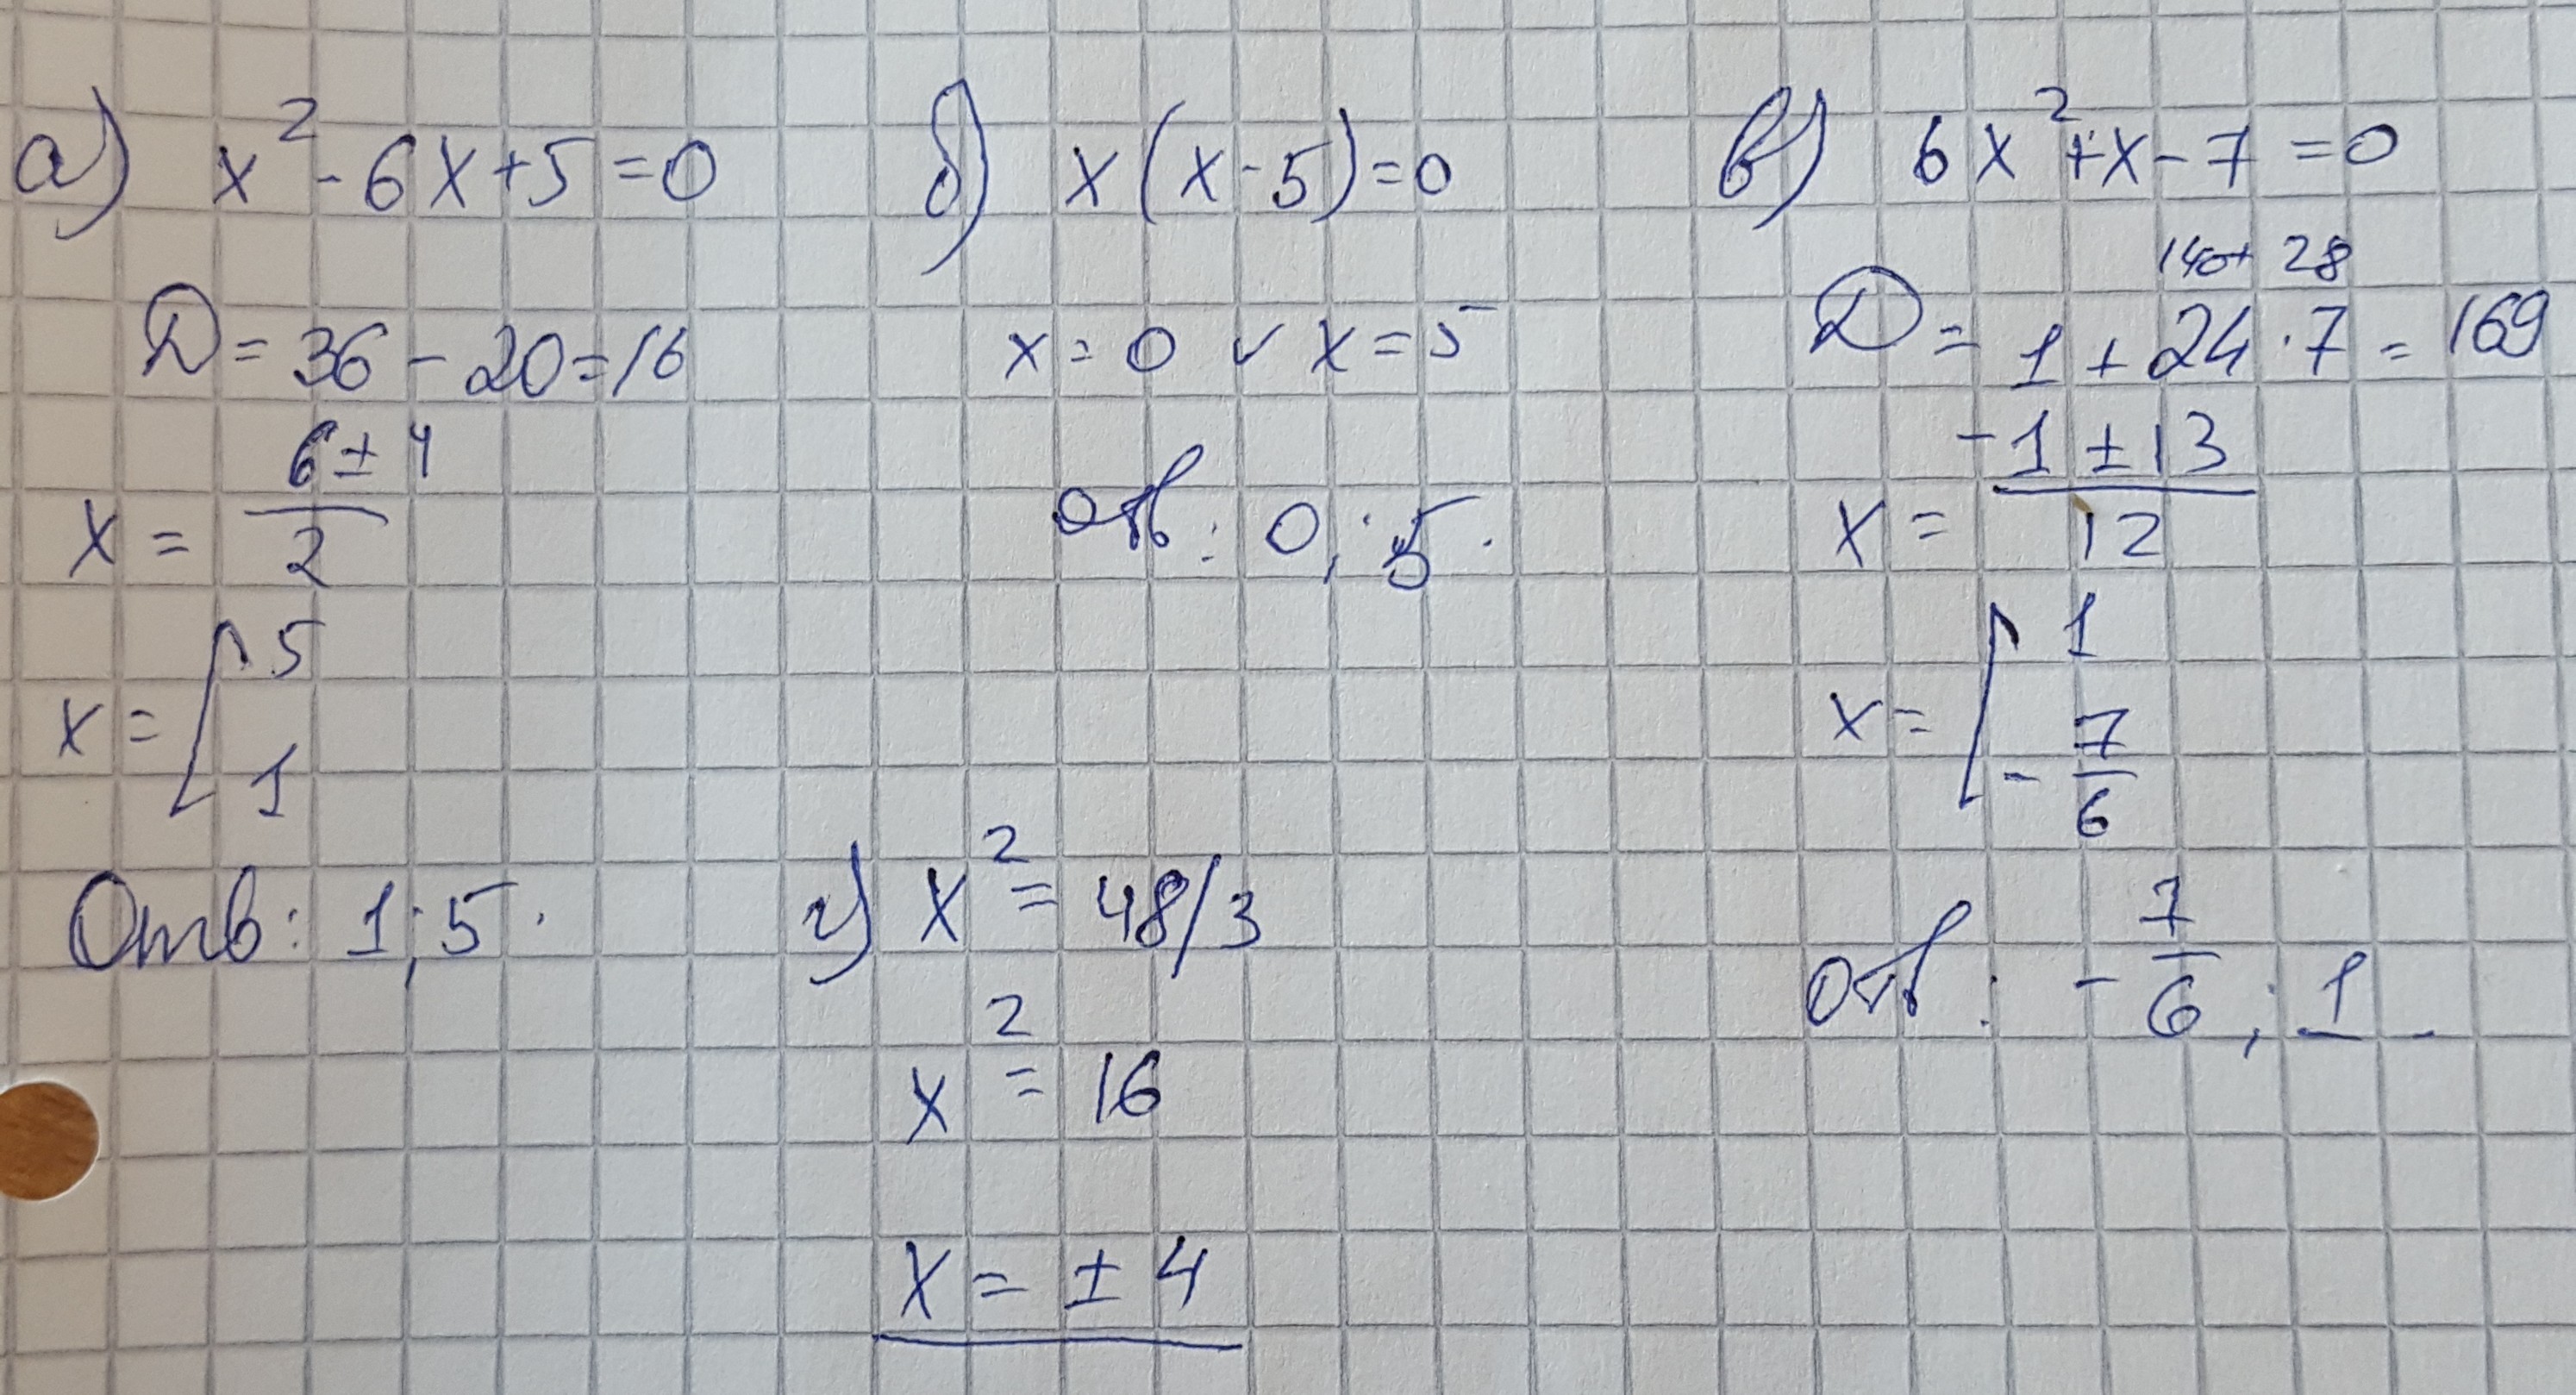 а) x² - 6x + 5 = 0
D = 36 - 20 = 16
x = (6 ± 4)/2
x = [ 5
1
Отв: 1; 5.
б) x(x - 5) = 0
x = 0 ∨ x = 5
отв: 0; 5.
в) 6x² + x - 7 = 0
140+ 28
D = 1 + 24 · 7 = 169
x = (-1 ± 13)/12
x = [ 1
- 7/6
отв: - 7/6; 1.
г) x² = 48/3
x² = 16
x = ± 4